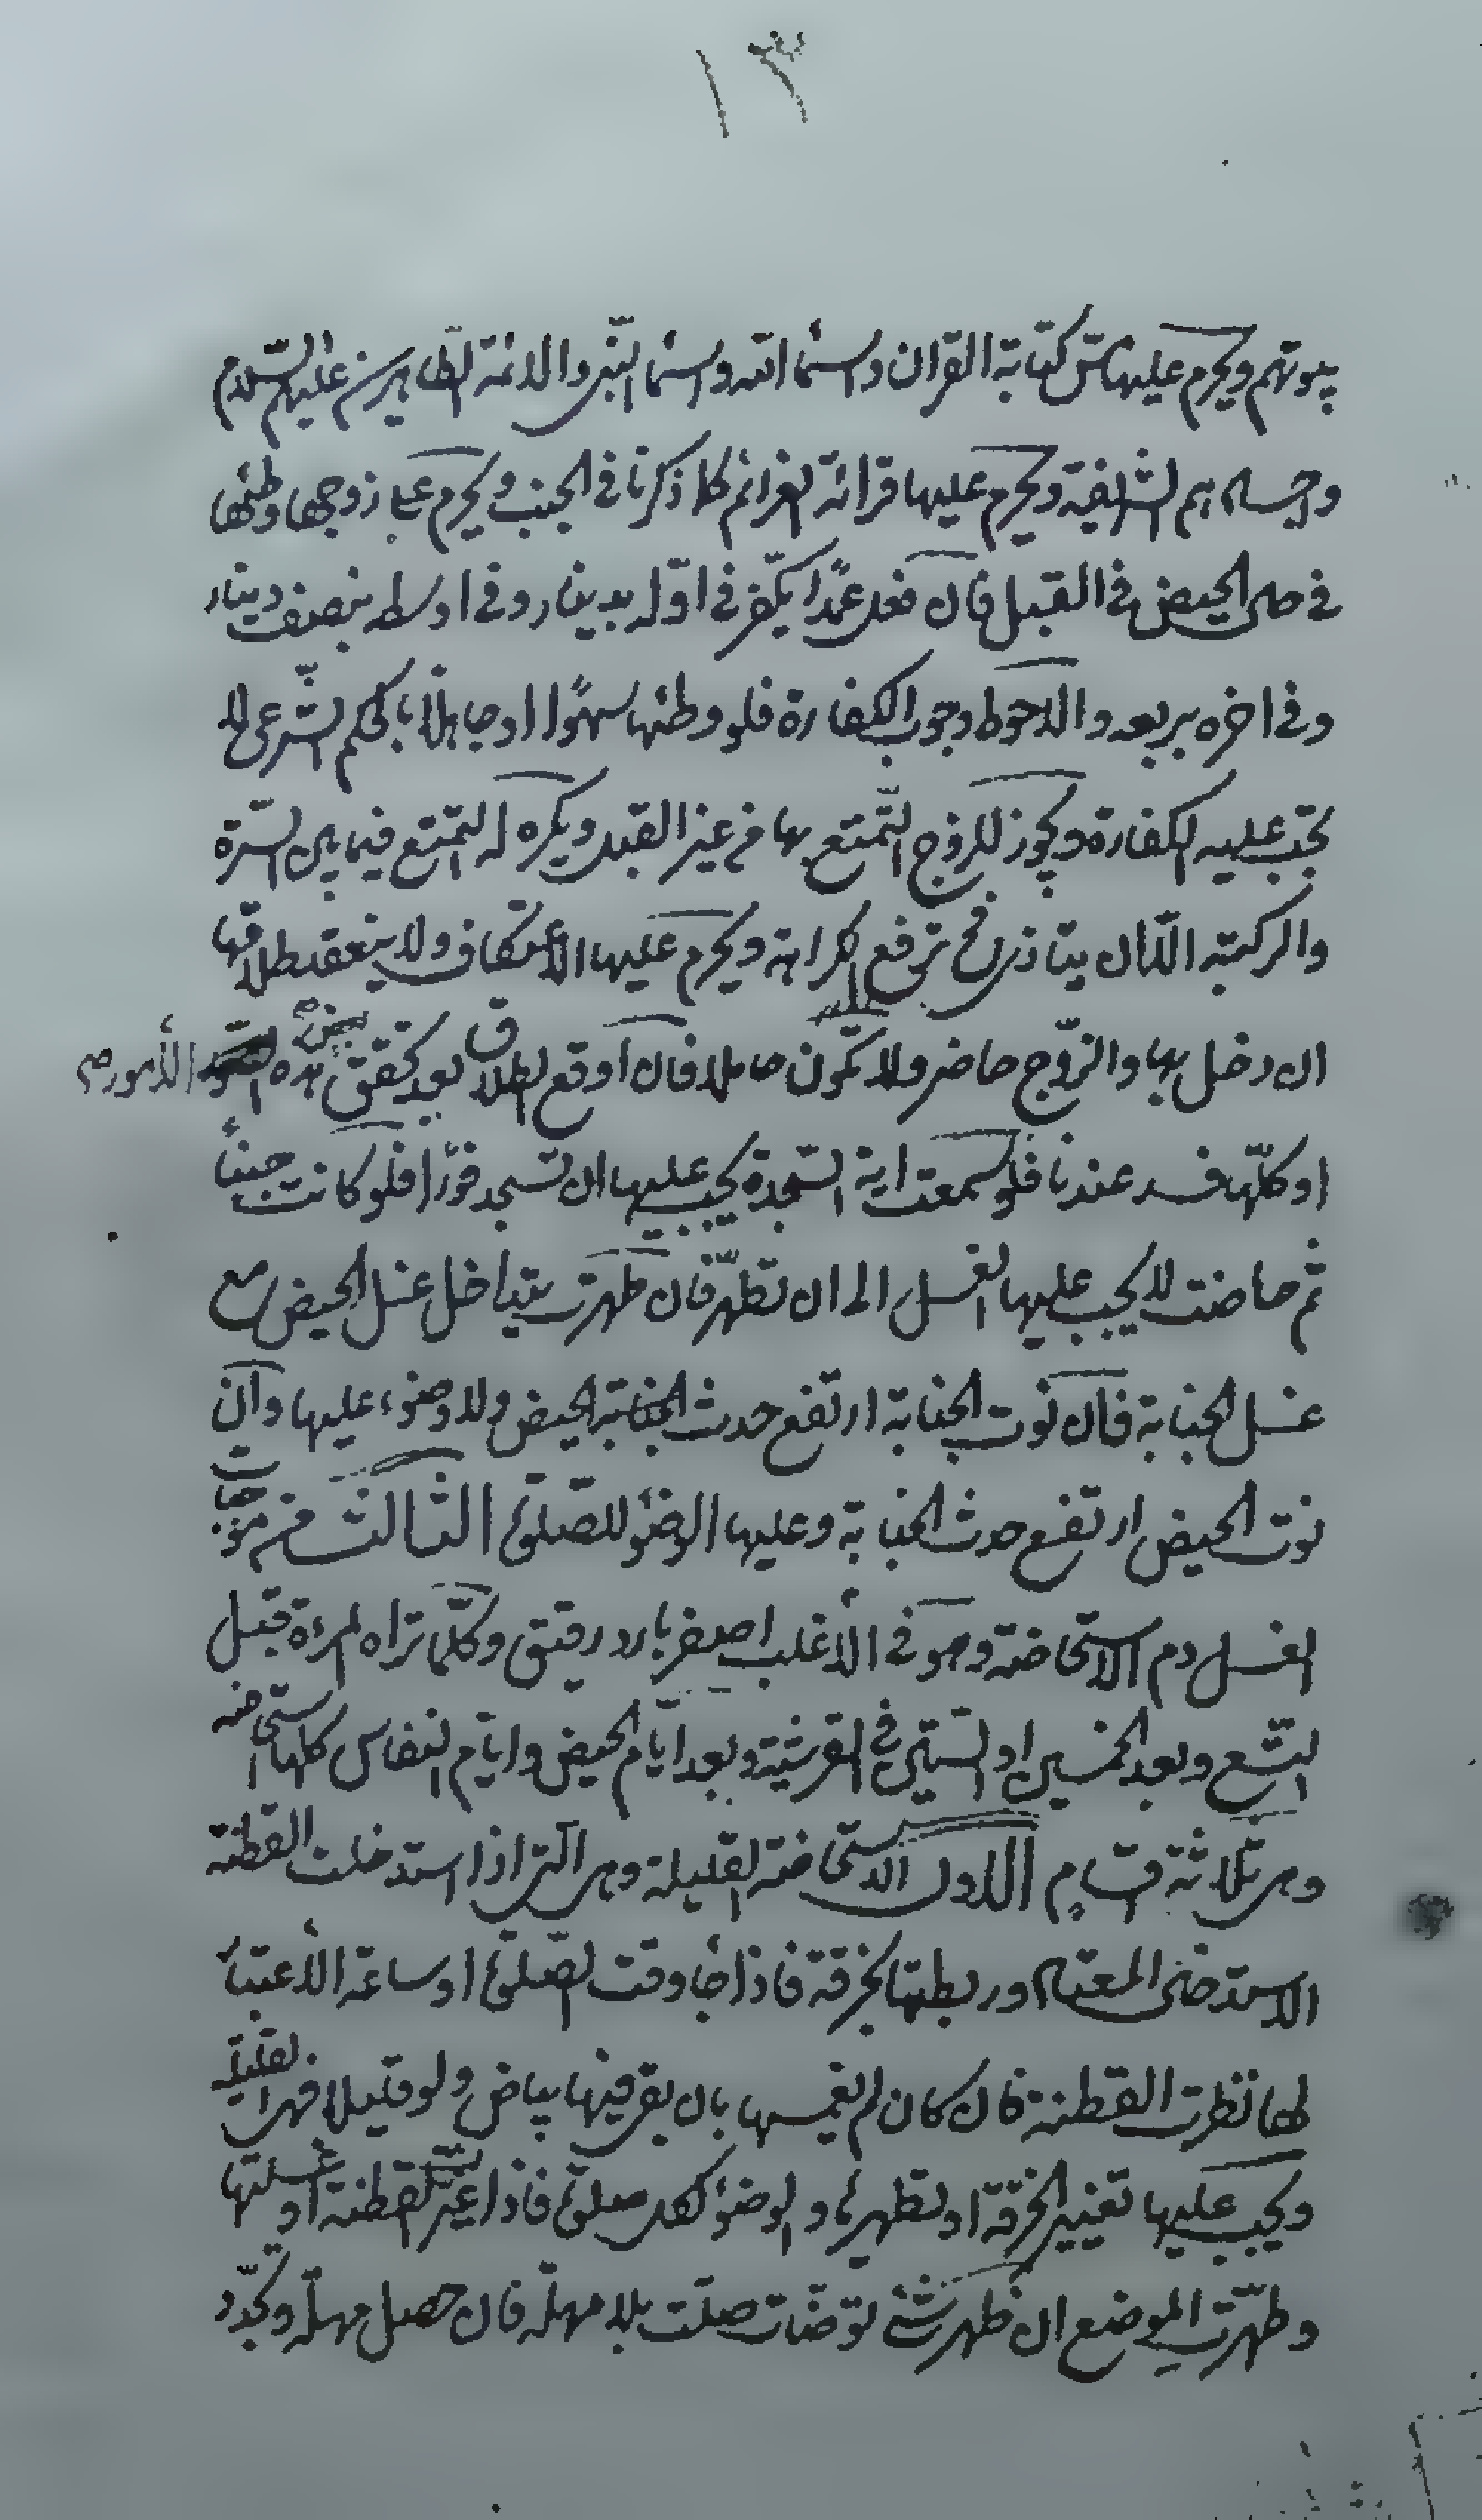 ١٣
بيوتهم ويحرم عليها مسّ كتابة القران واسمأ الله واسمأ النّبي والائمة الطّاهرين عليهم السّلام
الشّريفة ويحرم عليها قرائة العزائم كلا ذكرنا في الجنب ويحرم على زوجها وطئها
في حال الحيض في القبل فان فعل عمدًا يكفّر في اوّله بدينار وفي اوسطه بنصف دينار
وفي اخره بربعه والاحوط وجوب الكفارة فلو وطئها سهوًا او جاهلًا بالحكم الشّرعي لا
يجب عليه الكفارة ويجوز للزوج التّمتع بها في غير القبل ويكره له التمتع فيما بين السّرة
والركبة الّا ان يتاذر فح ترفع الكراهة ويحرم عليها الأعتكاف ولا ينعقد طلاقها
ان دخل بها والزّوج حاضر ولا تكون حاملا فان اوقع الطلاق بعد تحقق بعض هذه الأمور صح
او كلّها فسد عندنا فلو سمعت اية السّجدة يجب عليها ان تسجد فورًا فلو كانت جنبًا
ثم حاضت لا يجب عليها الغسل الى ان تطّهر فان طهرت يتداخل غسل الحيض مع
غسل الجنابة فان نوت الجنابة ارتفع حدث الحيض ولا وضوء عليها وان
نوت الحيض ارتفع حدث الجنابة وعليها الوضؤ للصّلوة الثالث من موجبات
الغسل دم الاستحاضة وهو في الأغلب اصفر بارد رقيق وكلّما تراه المرءة قبل
التّسع وبعد الخمسين او السّتين في القرشية وبعد ايّام الحيض وايّام النفاس كلها استحاضه
وهي ثلاثة اقسام الاول الاستحاضة القليلة وهي الّتي اذا استدخلت القطنة
الاستدخال المعتاد وربطتها بخرقة فاذا جأ وقت الصّلوة او ساعة الأعتبأ
لها نظرت القطنة فان كان لم يغمسها بان بقي فيها بياض ولو قليلا فهي القليلة
ويجب عليها تغيير الخرقة او تطهيرها والوضؤ لكل صلوة فاذا غيّرت القطنة او غسلتها
وطهّرت الموضع ان ظهر شئ توضّات صلّت بلا مهلة فان حصل مهلة وتجدّد